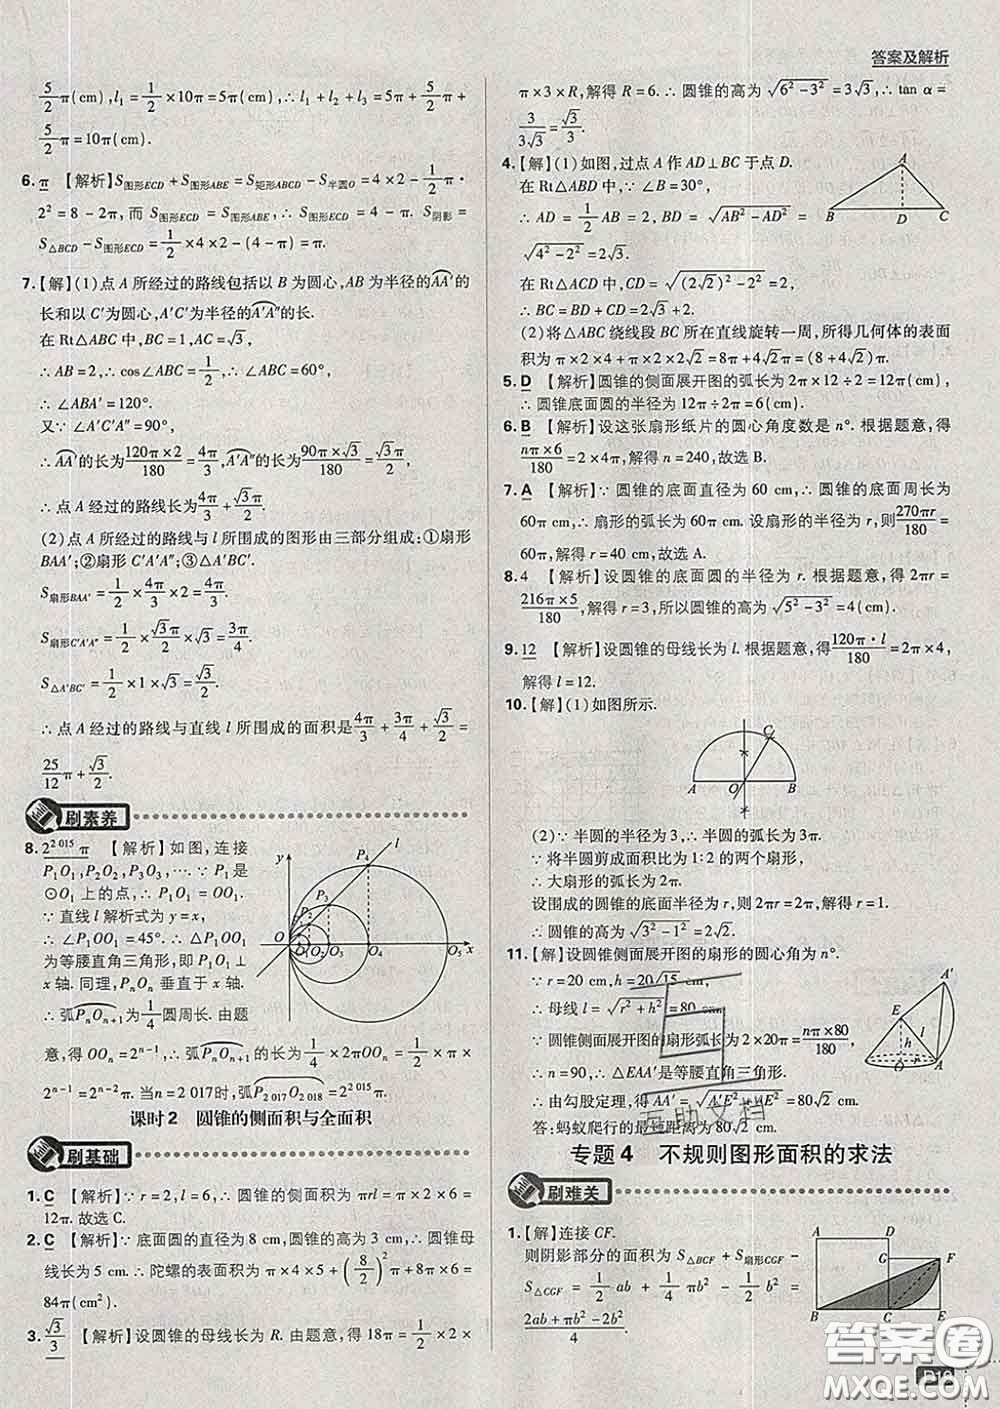 答案及解析
5/2 π(cm), l₁ = 1/2 × 10π = 5π(cm), ∴ l₁ + l₂ + l₃ = 5π + 5/2 π +
5/2 π = 10π(cm).
6. π 【解析】S图形ECD + S图形ABE = S矩形ABCD − S半圆O = 4 × 2 − 1/2 π ·
2² = 8 − 2π, 而 S图形ECD = S图形ABE, ∴ S图形ECD = 4 − π. S阴影 =
S△BCD − S图形ECD = 1/2 × 4 × 2 − (4 − π) = π.
7.【解】(1)点 A 所经过的路线包括以 B 为圆心, AB 为半径的 AA′ 的
长和以 C′为圆心, A′C′为半径的 A′A″的长.
在 Rt△ABC 中, BC = 1, AC = √3,
∴ AB = 2, ∴ cos∠ABC = 1/2, ∴ ∠ABC = 60°,
∴ ∠ABA′ = 120°.
又∵ ∠A′C′A″ = 90°,
∴ AA′的长为 120π × 2/180 = 4π/3, A′A″的长为 90π × √3/180 = √3π/2,
∴ 点 A 经过的路线长为 4π/3 + √3π/2.
(2)点 A 所经过的路线与 l 所围成的图形由三部分组成:①扇形
BAA′;②扇形 C′A′A″;③△A′BC′.
S扇形BAA′ = 1/2 × 4π/3 × 2 = 4π/3,
S扇形C′A′A″ = 1/2 × √3π/2 × √3 = 3π/4,
S△A′BC′ = 1/2 × 1 × √3 = √3/2,
∴ 点 A 经过的路线与直线 l 所围成的面积是 4π/3 + 3π/4 + √3/2 =
25/12 π + √3/2.
刷素养
8. 2^2 015 π 【解析】如图, 连接
P₁O₁, P₂O₂, P₃O₃, ···. ∵ P₁ 是
⊙O₁ 上的点, ∴ P₁O₁ = OO₁.
∵ 直线 l 解析式为 y = x,
∴ ∠P₁OO₁ = 45°. ∴ △P₁OO₁
为等腰直角三角形, 即 P₁O₁ ⊥
x 轴. 同理, PₙOₙ 垂直于 x 轴.
∴ 弧 PₙOₙ₊₁ 为 1/4 圆周长. 由题
意, 得 OOₙ = 2ⁿ⁻¹, ∴ 弧 PₙOₙ₊₁ 的长为 1/4 × 2πOOₙ = 1/2 π ×
2ⁿ⁻¹ = 2ⁿ⁻²π. 当 n = 2 017时, 弧 P₂₀₁₇O₂₀₁₈ = 2^2 015 π.
y l P₄ P₃ P₂ O O₁ O₂ O₃ O₄ O₅ x
课时2 圆锥的侧面积与全面积
刷基础
1. C 【解析】∵ r = 2, l = 6, ∴ 圆锥的侧面积为 πrl = π × 2 × 6 =
12π. 故选 C.
2. C 【解析】∵ 底面圆的直径为 8 cm, 圆锥的高为 3 cm, ∴ 圆锥母
线长为 5 cm, ∴ 陀螺的表面积为 π × 4 × 5 + (8/2)² π + 8π × 6 =
84π(cm²).
3. √3/3 【解析】设圆锥的母线长为 R. 由题意, 得 18π = 1/2 × 2 ×
π × 3 × R, 解得 R = 6. ∴ 圆锥的高为 √(6² − 3²) = 3√3, ∴ tan α =
3/(3√3) = √3/3.
4.【解】(1)如图, 过点 A 作 AD⊥BC 于点 D.
在 Rt△ABD 中, ∵ ∠B = 30°,
∴ AD = 1/2 AB = 2, BD = √(AB² − AD²) =
√(4² − 2²) = 2√3.
在 Rt△ACD 中, CD = √((2√2)² − 2²) = 2,
∴ BC = BD + CD = 2√3 + 2.
A B D C
(2)将△ABC 绕线段 BC 所在直线旋转一周, 所得几何体的表面
积为 π × 2 × 4 + π × 2 × 2√2 = 8π + 4√2π = (8 + 4√2)π.
5. D 【解析】圆锥的侧面展开图的弧长为 2π × 12 ÷ 2 = 12π(cm),
∴ 圆锥底面圆的半径为 12π ÷ 2π = 6(cm).
6. B 【解析】设这张扇形纸片的圆心角度数是 n°. 根据题意, 得
nπ × 6/180 = 2 × 4π, 解得 n = 240, 故选 B.
7. A 【解析】∵ 圆锥的底面直径为 60 cm, ∴ 圆锥的底面周长为
60π cm, ∴ 扇形的弧长为 60π cm. 设扇形的半径为 r, 则 270πr/180 =
60π, 解得 r = 40 cm, 故选 A.
8. 4 【解析】设圆锥的底面圆的半径为 r. 根据题意, 得 2πr =
216π × 5/180, 解得 r = 3, 所以圆锥的高为 √(5² − 3²) = 4(cm).
9. 12 【解析】设圆锥的母线长为 l. 根据题意, 得 120π · l/180 = 2π × 4,
解得 l = 12.
10.【解】(1)如图所示.
C A O B
(2)∵ 半圆的半径为 3, ∴ 半圆的弧长为 3π.
∵ 将半圆剪成面积比为 1∶2 的两个扇形,
∴ 大扇形的弧长为 2π.
设围成的圆锥的底面半径为 r, 则 2πr = 2π, 解得 r = 1.
∴ 圆锥的高为 √(3² − 1²) = 2√2.
11.【解】设圆锥侧面展开图的扇形的圆心角为 n°.
∵ r = 20 cm, h = 20√15 cm,
∴ 母线 l = √(r² + h²) = 80 cm,
∵ 圆锥侧面展开图的扇形弧长为 2 × 20π = nπ × 80/180,
∴ n = 90, ∴ △EAA′是等腰直角三角形,
∴ 由勾股定理, 得 AA′ = √(A′E² + AE²) = 80√2 cm.
答:蚂蚁爬行的最短距离为 80√2 cm.
A′ E l h O r A
专题4 不规则图形面积的求法
刷难关
1.【解】连接 CF.
则阴影部分的面积为 S△BCF + S扇形CGF −
S△CGF = 1/2 ab + 1/4 πb² − 1/2 b² =
(2ab + πb² − 2b²)/4.
A D G F B C E
互助文档
答案圈
MXQE.COM